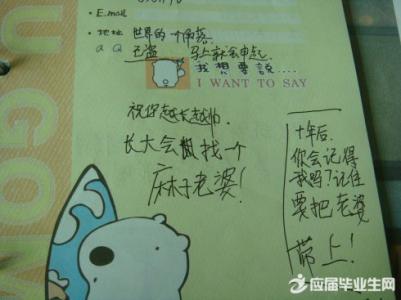 • E.mail
• 地址 世界的一个角落
Q Q 已盗 马上就会申起
我想要說....
I WANT TO SAY
祝你越长越帅.
长大会 找一个
麻子老婆!
十年后.
你会记得
我吗?记住
要把老婆
带上!
UGOM
应届毕业生网